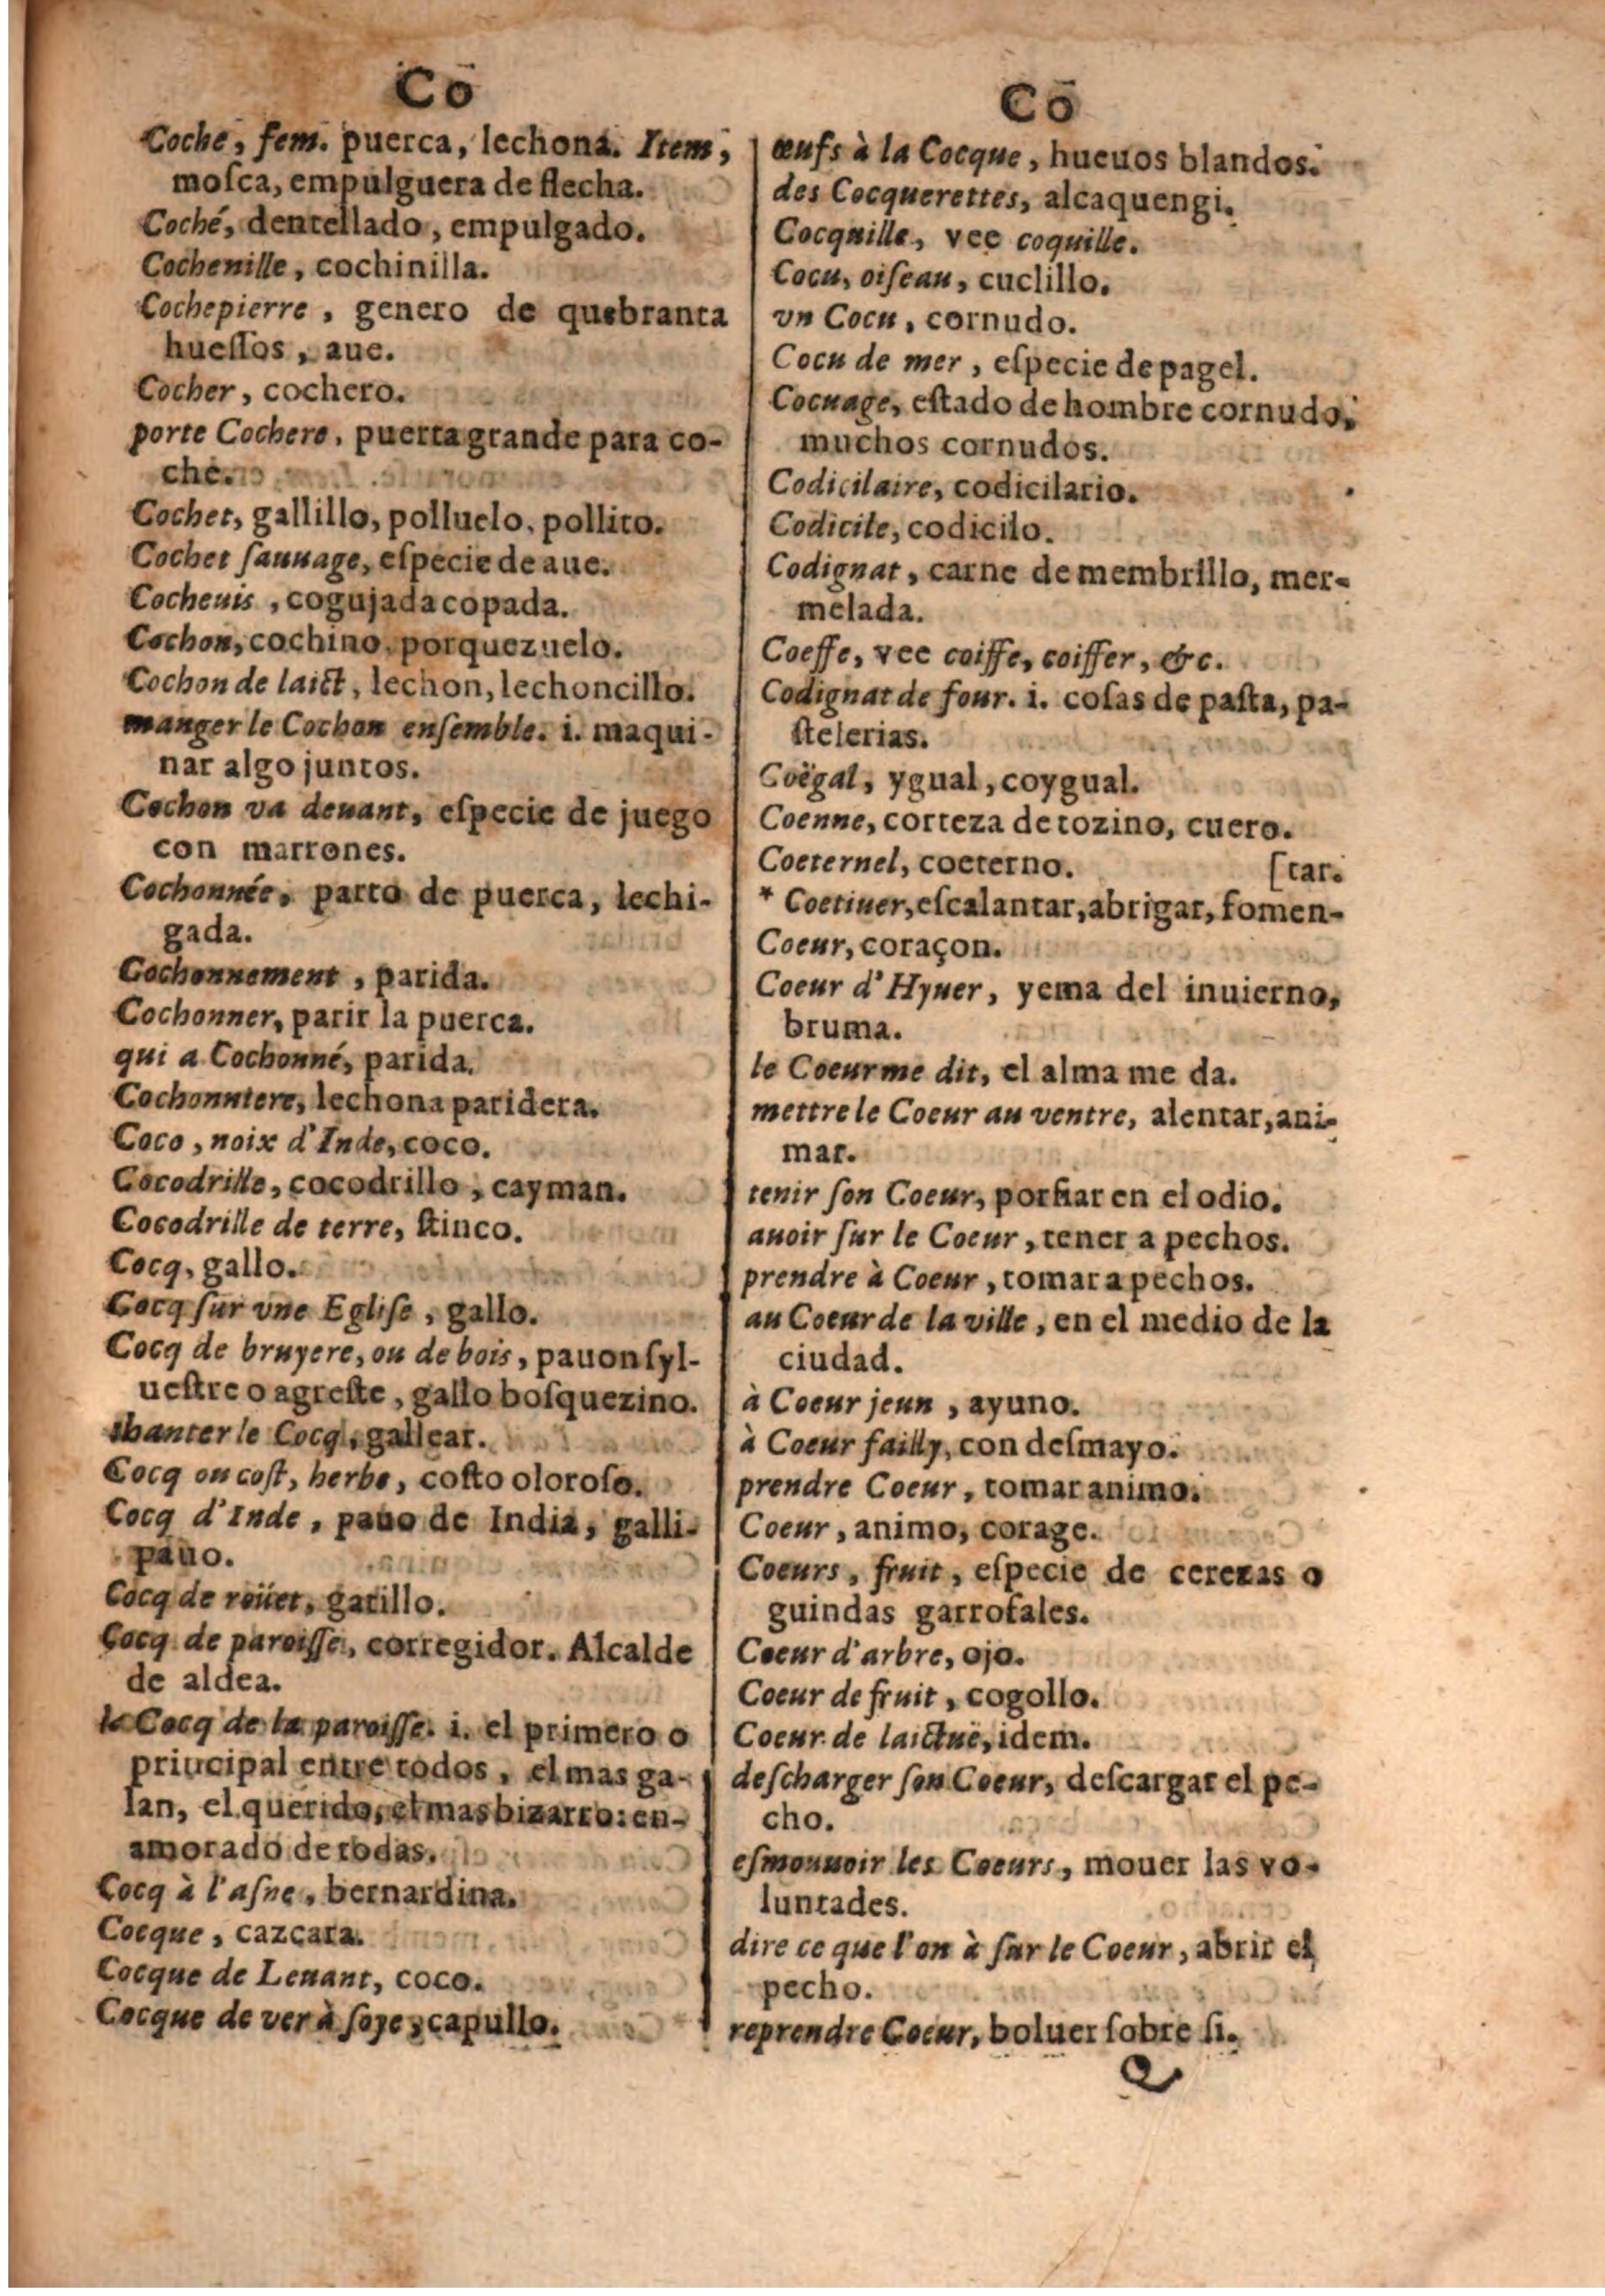 Co
Coche, fem. puerca, lechona. Item,
moſca, empulguera de flecha.
Coché, dentellado, empulgado.
Cochenille, cochinilla.
Cochepierre, genero de quebranta
hueſſos, aue.
Cocher, cochero.
porte Cochere, puerta grande para co-
che.
Cochet, gallillo, polluelo, pollito.
Cochet ſauuage, eſpecie de aue.
Cocheuis, cogujada copada.
Cochon, cochino, porquezuelo.
Cochon de laict, lechon, lechoncillo.
manger le Cochon enſemble. i. maqui-
nar algo juntos.
Cochon va deuant, eſpecie de juego
con marrones.
Cochonnée, parto de puerca, lechi-
gada.
Cochonnement, parida.
Cochonner, parir la puerca.
qui a Cochonné, parida.
Cochonniere, lechona paridera.
Coco, noix d'Inde, coco.
Cocodrille, cocodrillo, cayman.
Cocodrille de terre, ſtinco.
Cocq, gallo.
Cocq ſur vne Egliſe, gallo.
Cocq de bruyere, ou de bois, pauon ſyl-
ueſtre o agreſte, gallo boſquezino.
chanter le Cocq, gallear.
Cocq ou coſt, herbe, coſto oloroſo.
Cocq d'Inde, pauo de India, galli-
pauo.
Cocq de roüet, gatillo.
Cocq de paroiſſe, corregidor. Alcalde
de aldea.
le Cocq de la paroiſſe. i. el primero o
priucipal entre todos, el mas ga-
lan, el querido, el mas bizarro: en-
amorado de todas.
Cocq à l'aſne, bernardina.
Cocque, cazcara.
Cocque de Leuant, coco.
Cocque de ver à ſoye, capullo.
Co
œufs à la Cocque, hueuos blandos.
des Cocquerettes, alcaquengi.
Cocquille, vee coquille.
Cocu, oiſeau, cuclillo.
vn Cocu, cornudo.
Cocu de mer, eſpecie de pagel.
Cocuage, eſtado de hombre cornudo,
muchos cornudos.
Codicilaire, codicilario.
Codicile, codicilo.
Codignat, carne de membrillo, mer-
melada.
Coeffe, vee coiffe, coiffer, &c.
Codignat de four. i. coſas de paſta, pa-
ſtelerias.
Coëgal, ygual, coygual.
Coenne, corteza de tozino, cuero.
Coeternel, coeterno. [tar.
* Coetiuer, eſcalantar, abrigar, fomen-
Coeur, coraçon.
Coeur d'Hyuer, yema del inuierno,
bruma.
le Coeur me dit, el alma me da.
mettre le Coeur au ventre, alentar, ani-
mar.
tenir ſon Coeur, porfiar en el odio.
auoir ſur le Coeur, tener a pechos.
prendre à Coeur, tomar a pechos.
au Coeur de la ville, en el medio de la
ciudad.
à Coeur jeun, ayuno.
à Coeur failly, con deſmayo.
prendre Coeur, tomar animo.
Coeur, animo, corage.
Coeurs, fruit, eſpecie de cerezas o
guindas garrofales.
Coeur d'arbre, ojo.
Coeur de fruit, cogollo.
Coeur de laictuë, idem.
deſcharger ſon Coeur, deſcargar el pe-
cho.
eſmouuoir les Coeurs, mouer las vo-
luntades.
dire ce que l'on à ſur le Coeur, abrir el
pecho.
reprendre Coeur, boluer ſobre ſi.
Q